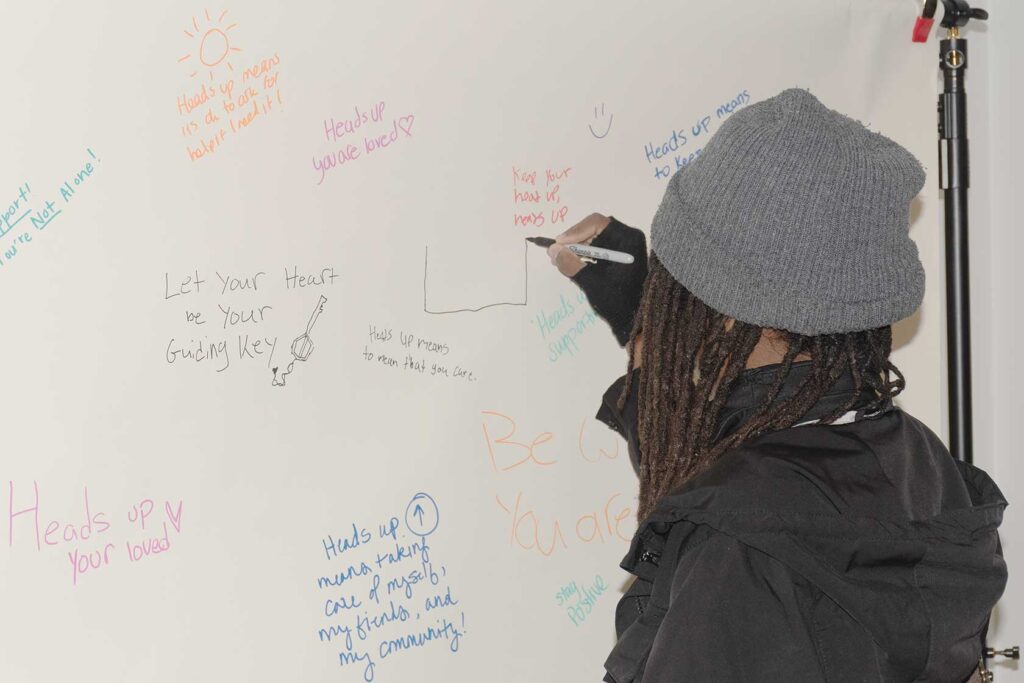 Heads up means
it's ok to ask for
help if I need it!
Heads up
you are loved
Heads up means
to keep
Keep your
head up,
heads up
You're Not Alone!
Let Your Heart
be Your
Guiding Key
Heads Up means
to mean that you care.
"Heads u
support
Sharpie
Be
You are
Heads up
your loved
Heads up
means taking
care of myself,
my friends, and
my community!
stay
Positive